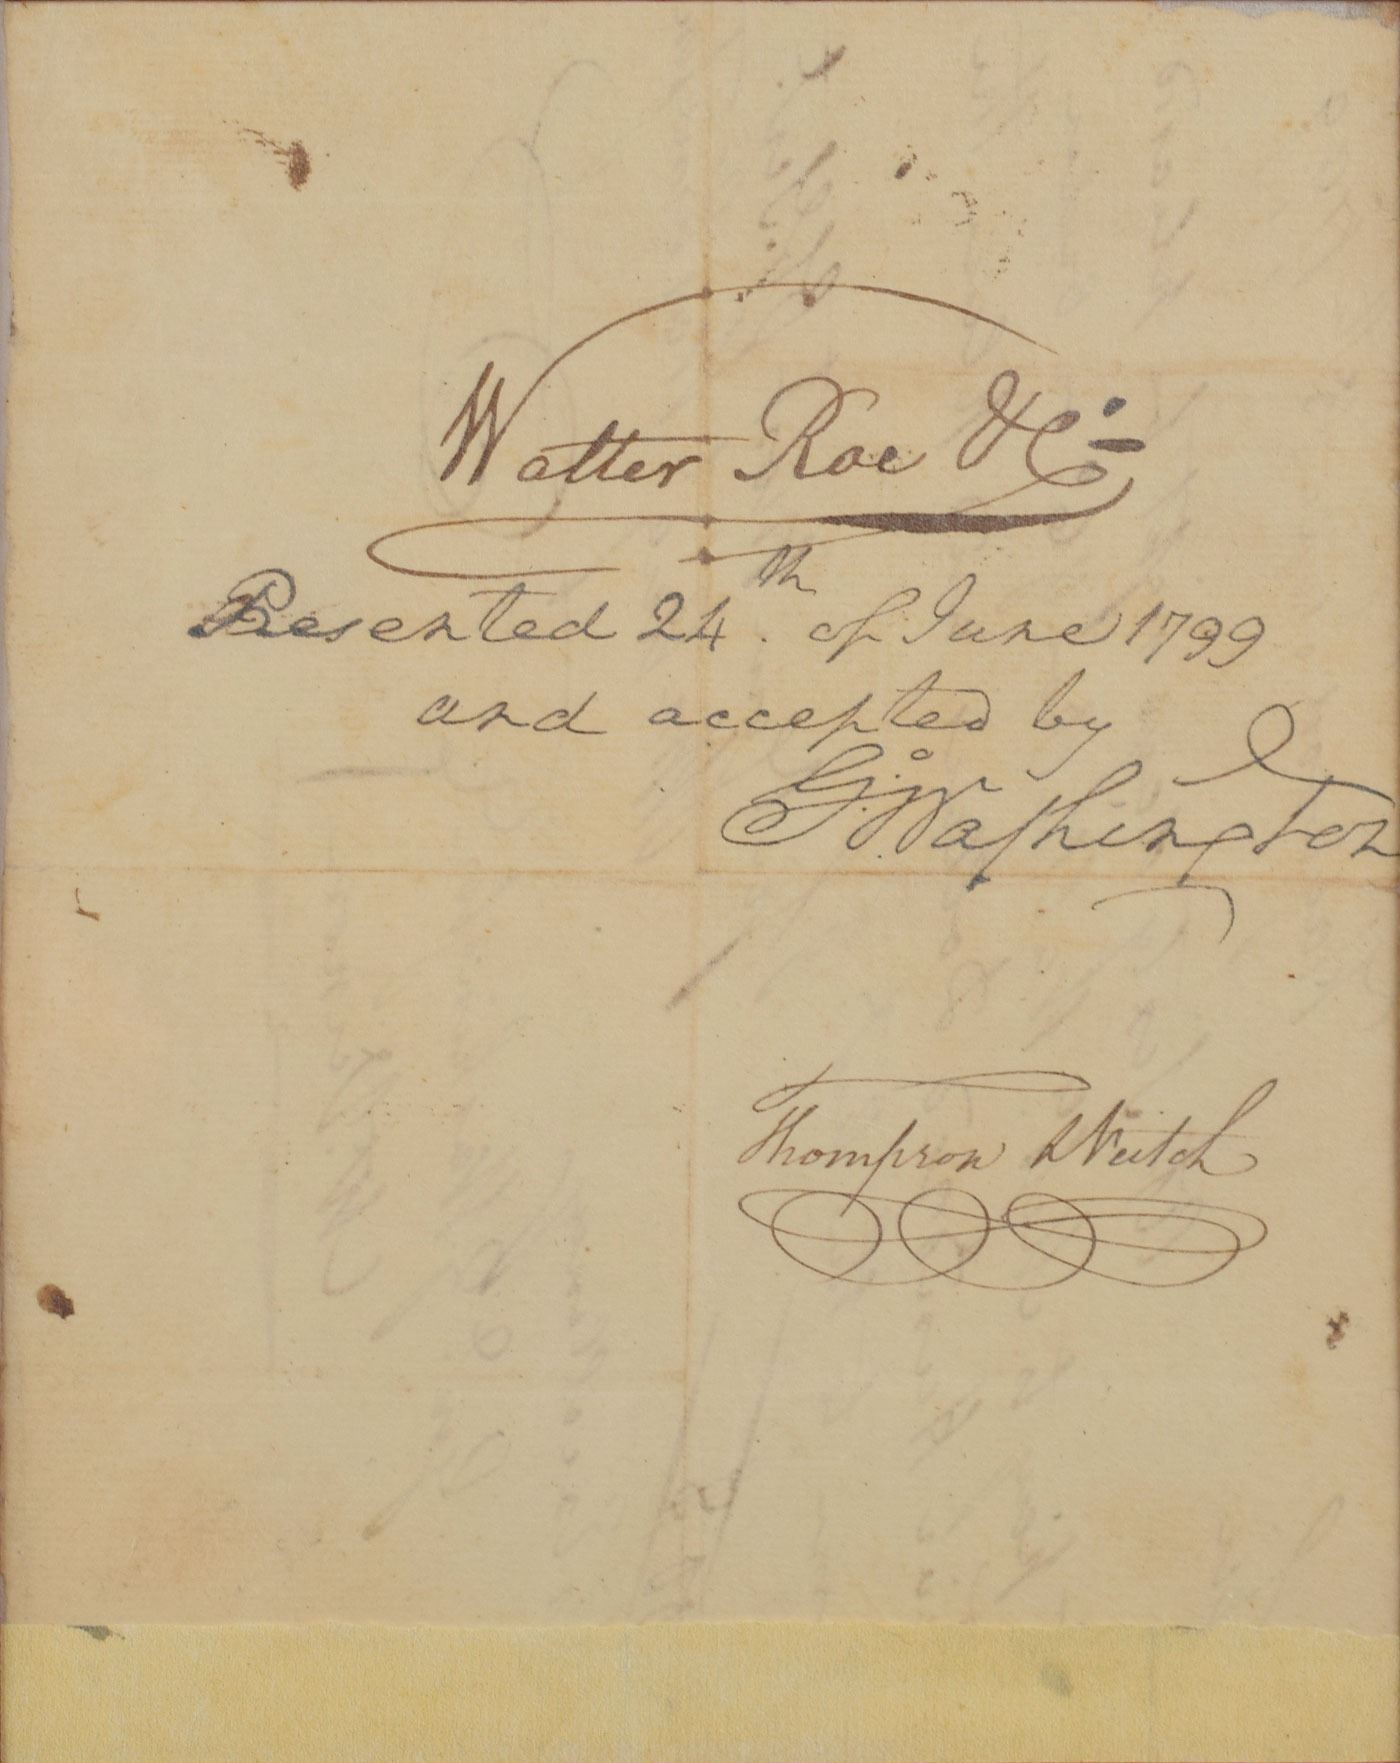 Walter Roe & Co.
Presented 24th. of June 1799
and accepted by
Go. Washington
Thompson & Veitch